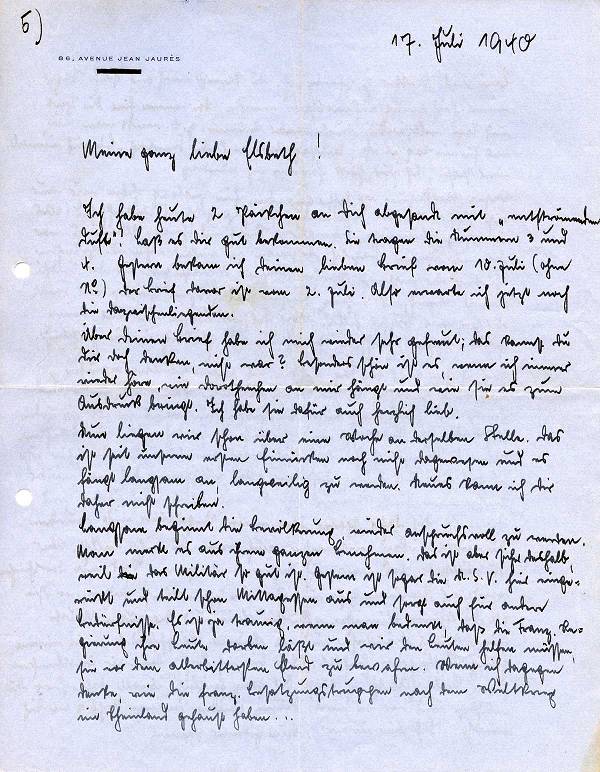 5)
17. Juli 1940
86, AVENUE JEAN JAURÈS
Meine ganz liebe Elsbeth!
Ich habe heute 2 Päckchen an Dich abgesandt mit „entströmenden
Duft"! Laß es dir gut bekommen. Sie tragen die Nummern 3 und
4. Gestern bekam ich deinen lieben Brief vom 10. Juli (ohne
No) Der Brief davor ist vom 2. Juli. Also erwarte ich jetzt noch
die dazwischenliegenden.
Über deinen Brief habe ich mich wieder sehr gefreut; das kannst du
dir doch denken, nicht war? Besonders schön ist es, wenn ich immer
wieder höre, wie Dorotheechen an mir hängt und wie sie es zum
Ausdruck bringt. Ich habe sie dafür auch herzlich lieb.
Nun liegen wir schon über eine Woche an derselben Stelle. Das
ist seit unserem ersten Einrücken noch nicht dagewesen und es
fängt langsam an, langweilig zu werden. Neues kann ich dir
daher nicht schreiben.
Langsam beginnt die Bevölkerung wieder anspruchsvoll zu werden.
Man merkt es aus ihrem ganzen Benehmen. Das ist aber sicher deshalb,
weil das Militär so gut ist. Gestern ist sogar die N.S.V. hier einge-
rückt und teilt schon Mittagessen aus und sorgt auch für andere
Bedürfnisse. Es ist ja traurig, wenn man bedenkt, daß die Franz. Re-
gierung ihre Leute darben läßt und wir den Leuten helfen müssen,
sie vor dem allerbittersten Elend zu bewahren. Wenn ich dagegen
denke, wie die franz. Besatzungstruppen nach dem Weltkrieg
im Rheinland gehaust haben...